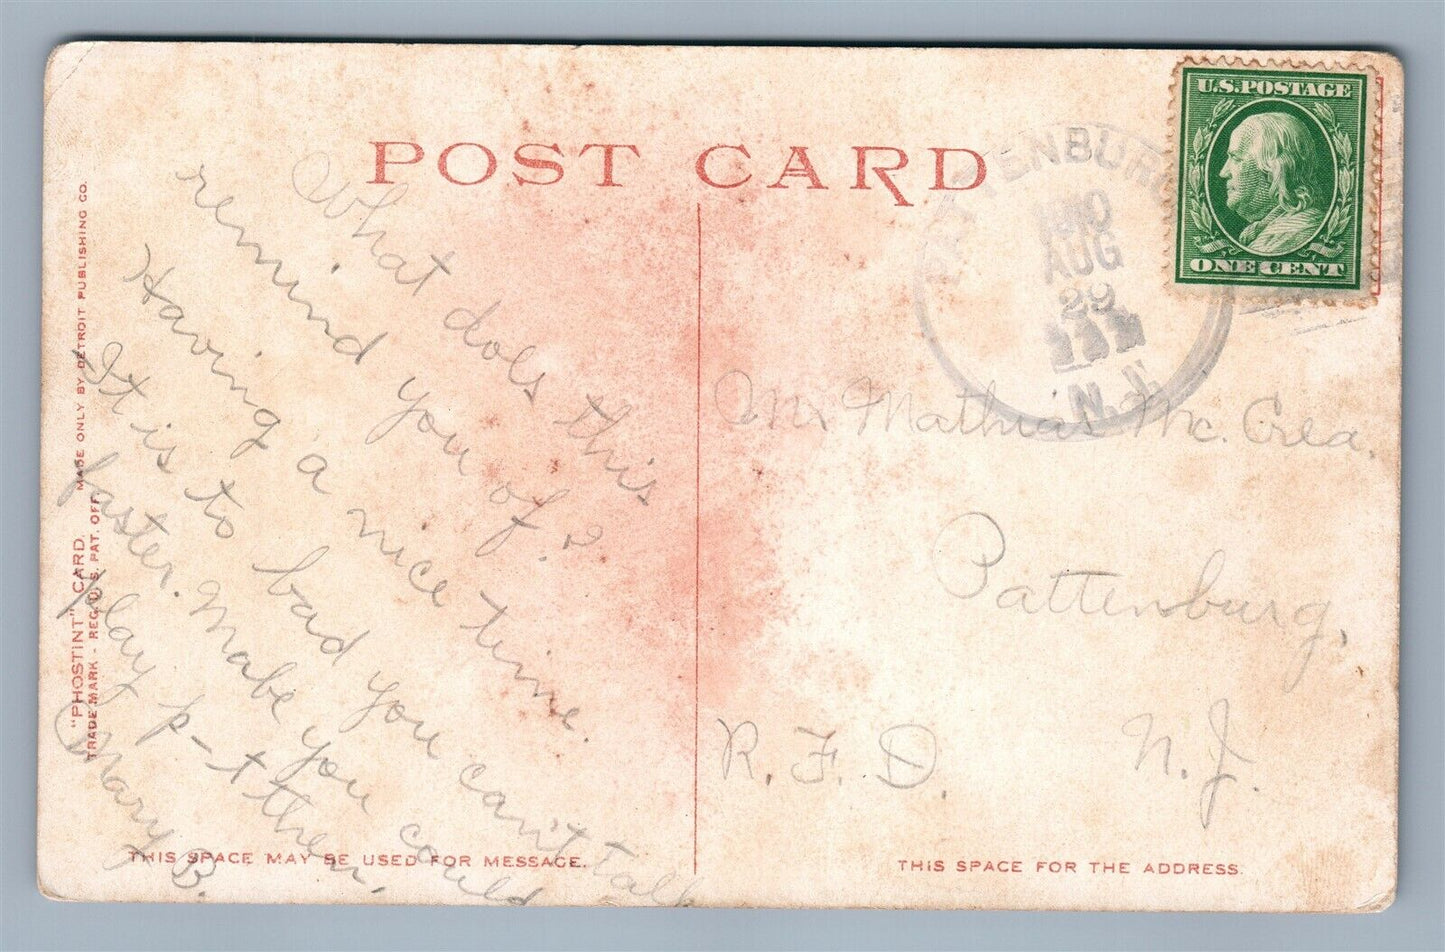 POST CARD
U.S.POSTAGE
ONE CENT
AUG
29
N.J.
What does this
remind you of?
Having a nice time.
It is to bad you can't talk
faster. Mabe you could
play p-t then.
Mary B.
Mr Mathias Mc. Crea.
Pattenburg,
R.F.D. N.J.
"PHOSTINT" CARD. MADE ONLY BY DETROIT PUBLISHING CO.
TRADE MARK - REG. U.S. PAT. OFF.
THIS SPACE MAY BE USED FOR MESSAGE.
THIS SPACE FOR THE ADDRESS.